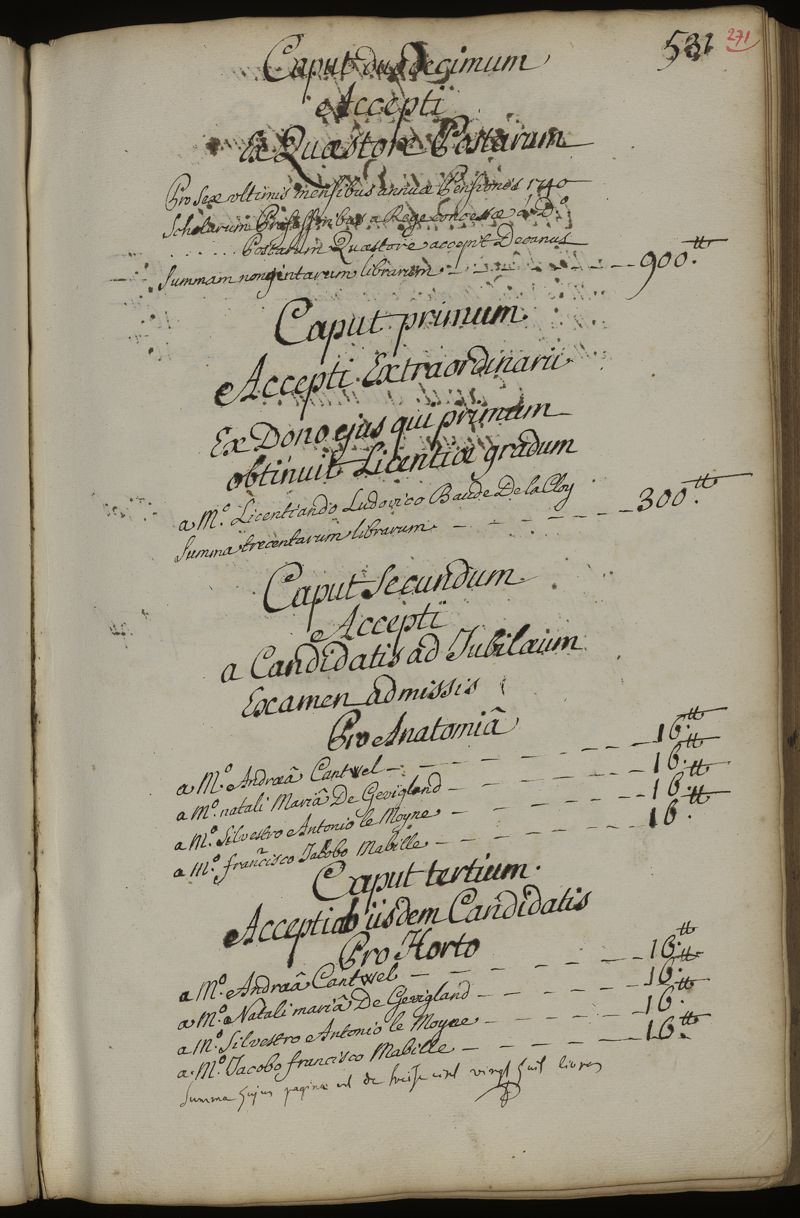 531 271
Caput duodecimum
Accepti
Ex Quæstore Postarum
Pro sex ultimis mensibus annuæ Pensionis 1740
Scholarum Professoribus a Rege concessæ a D.º
Postarum Quæstore accepit Decanus
Summam nongentarum librarum 900.tt
Caput primum.
Accepti Extraordinarii
Ex Dono ejus qui primum
obtinuit Licentiæ gradum
a M.º Licentiando Ludovico Baude De la Cloy
Summa trecentarum librarum 300.tt
Caput Secundum.
Accepti
a Candidatis ad Jubilæum
Examen admissis
Pro Anatomiâ
a M.º Andræâ Cantwel 16.tt
a M.º natali Mariâ De Gevigland 16.tt
a M.º Silvestro Antonio le Moyne 16.tt
a M.º francisco Jacobo Mabille 16.tt
Caput tertium.
Accepti ab iisdem Candidatis
Pro Horto
a M.º Andræâ Cantwel 16.tt
a M.º Natali mariâ De Gevigland 16.tt
a M.º Silvestro Antonio le Moyne 16.tt
a M.º Jacobo francisco Mabille 16.tt
Summa hujus paginæ est de treize cent vingt huit livres